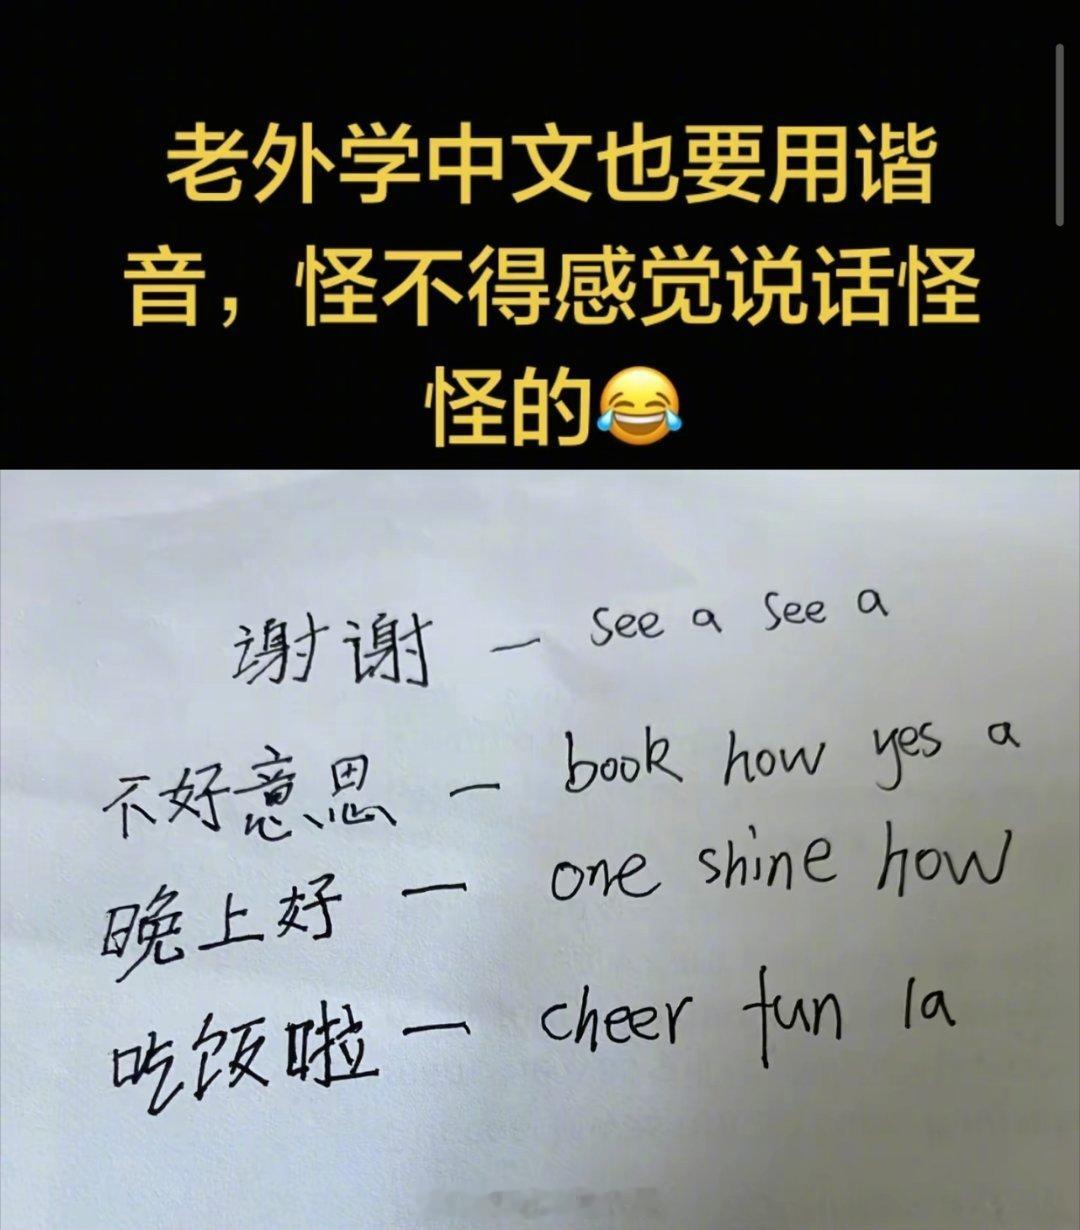 老外学中文也要用谐
音，怪不得感觉说话怪
怪的😂
谢谢 — see a see a
不好意思 — book how yes a
晚上好 — one shine how
吃饭啦 — cheer fun la